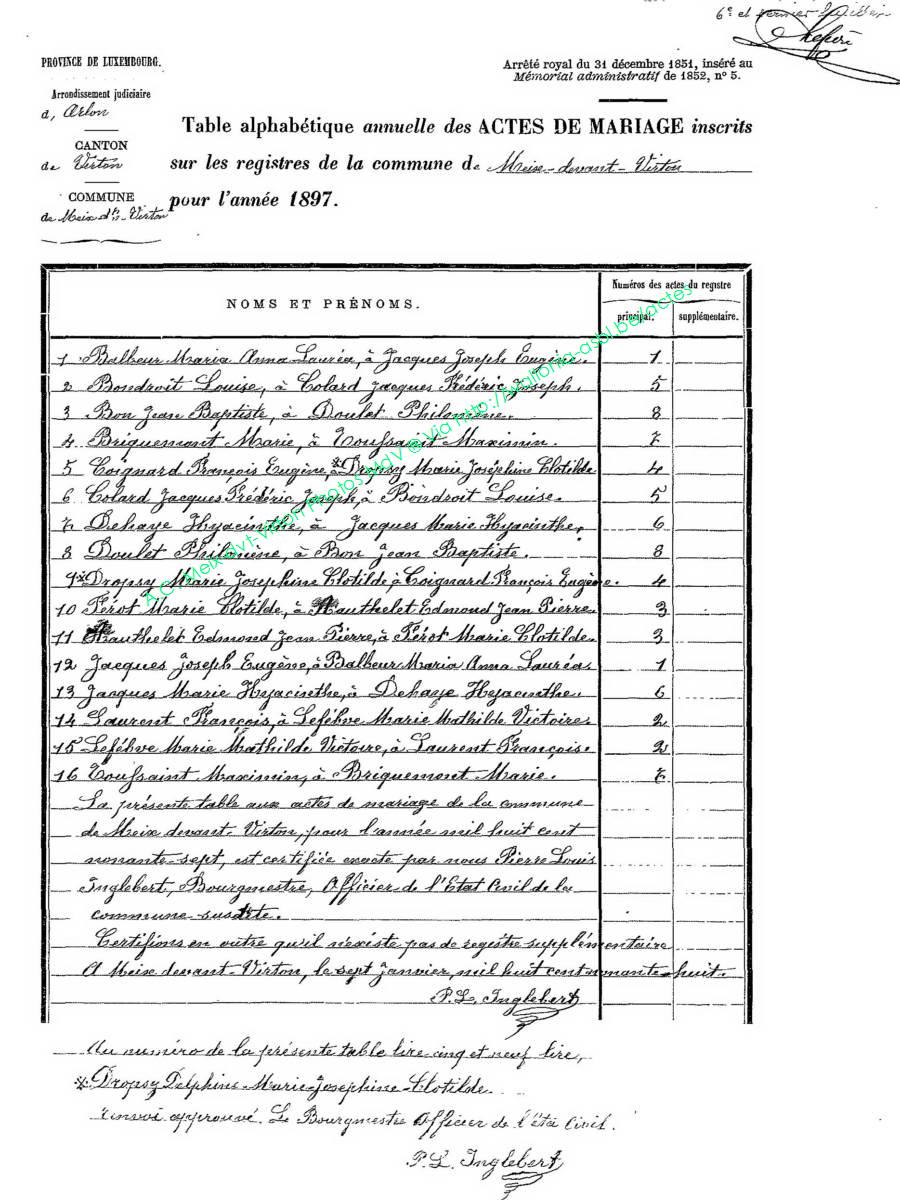 6e et dernier
PROVINCE DE LUXEMBOURG.
Arrondissement judiciaire
d, Arlon
CANTON
de Virton
COMMUNE
de Meix-dt-Virton
Arrêté royal du 31 décembre 1851, inséré au
Mémorial administratif de 1852, n° 5.
Table alphabétique annuelle des ACTES DE MARIAGE inscrits
sur les registres de la commune de Meix-devant-Virton
pour l'année 1897.
NOMS ET PRÉNOMS.
Numéros des actes du registre
principal. supplémentaire.
1 Balbeur Maria Anna Lauréa, à Jacques Joseph Eugène. 1
2 Bondroit Louise, à Colard Jacques Frédéric Joseph. 5
3 Bon Jean Baptiste, à Doulet Philomène. 8
4 Briquemont Marie, à Toussaint Maximin. 7
5 Coignard François Eugène, à *Dropsy Marie Joséphine Clotilde 4
6 Colard Jacques Frédéric Joseph, à Bondroit Louise. 5
7 Dehaye Hyacinthe, à Jacques Marie Hyacinthe. 6
8 Doulet Philomène, à Bon Jean Baptiste. 8
9 *Dropsy Marie Josephine Clotilde, à Coignard François Eugène. 4
10 Férot Marie Clotilde, à Hauthelet Edmond Jean Pierre. 3
11 Hauthelet Edmond Jean Pierre, à Férot Marie Clotilde. 3
12 Jacques Joseph Eugène, à Balbeur Maria Anna Lauréa 1
13 Jacques Marie Hyacinthe, à Dehaye Hyacinthe. 6
14 Laurent François, à Lefébve Marie Mathilde Victoire. 2
15 Lefébve Marie Mathilde Victoire, à Laurent François. 2
16 Toussaint Maximin, à Briquemont Marie. 7
La présente table aux actes de mariage de la commune
de Meix devant-Virton, pour l'année mil huit cent
nonante-sept, est certifiée exacte par nous Pierre Louis
Inglebert, Bourgmestre, Officier de l'Etat Civil de la
commune susdite.
Certifions en outre qu'il n'existe pas de registre supplémentaire
A Meix devant-Virton, le sept Janvier, mil huit cent nonante-huit.
P.L. Inglebert
Au numéro de la présente table lire cinq et neuf lire,
*Dropsy Delphine-Marie-Josephine-Clotilde.
Renvoi approuvé. Le Bourgmestre Officier de l'état Civil.
P.L. Inglebert
A.C. Meix-dvt-Virton Photos MdV @ Via http://lyallonia-asbl.be/actes